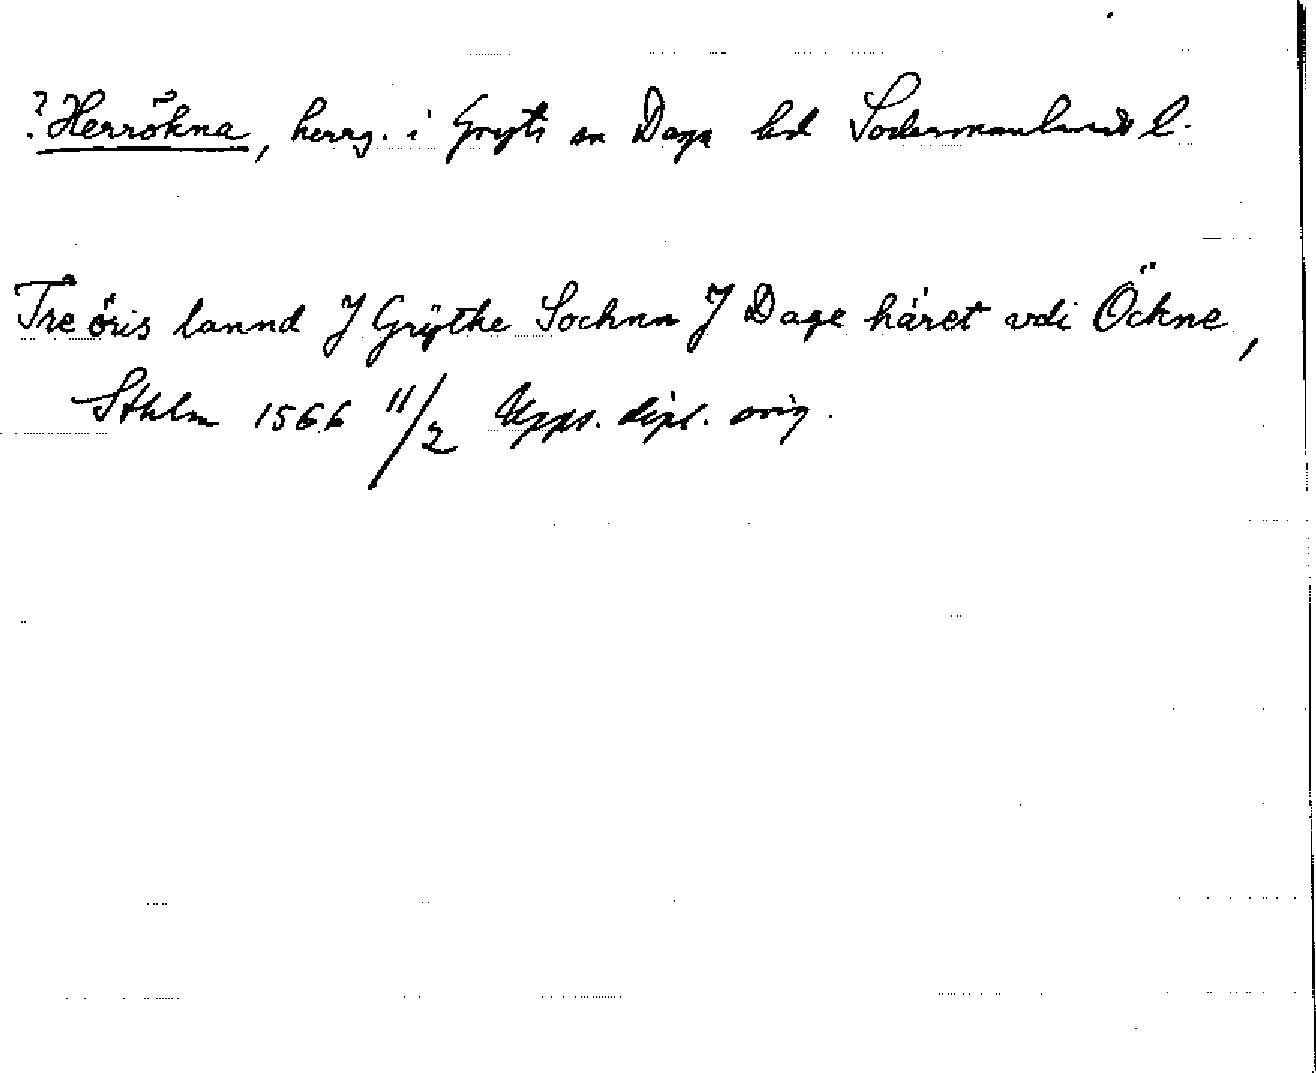 ? Herrökna, herrg. i Gryts sn Daga hd Södermanlands l.
Tre öris lannd J Grÿthe Sochnn J Dage häret vdi Öckne,
Sthlm 1566 11/2 Upps. dipl. orig.